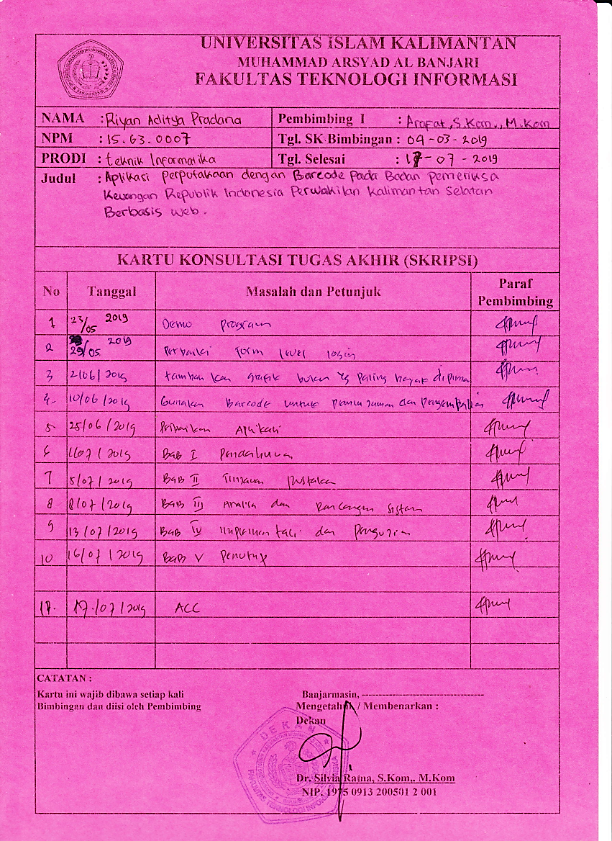 UNIVERSITAS ISLAM KALIMANTAN
MUHAMMAD ARSYAD AL BANJARI
FAKULTAS TEKNOLOGI INFORMASI
NAMA : Riyan Aditya Pradana Pembimbing I : Arafat, S.Kom., M.Kom
NPM : 15.63.0007 Tgl. SK Bimbingan : 09-03-2019
PRODI : Teknik Informatika Tgl. Selesai : 17-07-2019
Judul : Aplikasi perputakaan dengan Barcode pada Badan Pemeriksa
Keuangan Republik Indonesia Perwakilan Kalimantan Selatan
Berbasis Web.
KARTU KONSULTASI TUGAS AKHIR (SKRIPSI)
No Tanggal Masalah dan Petunjuk Paraf Pembimbing
1 23/05 2019 Demo Program
2 29/05 2019 Perbaiki form level login
3 2/06/2019 tambahkan grafik buku yg paling banyak dipinjam
4. 10/06/2019 Gunakan Barcode untuk peminjaman dan pengembalian
5 25/06/2019 Perbaikan Aplikasi
6 1/07/2019 BAB I Pendahuluan
7 5/07/2019 BAB II Tinjauan Pustaka
8 8/07/2019 BAB III Analisa dan Rancangan Sistem
9 13/07/2019 BAB IV Implementasi dan Pengujian
10 16/07/2019 BAB V Penutup
17. 17/07/2019 ACC
CATATAN :
Kartu ini wajib dibawa setiap kali
Bimbingan dan diisi oleh Pembimbing
Banjarmasin, ------------------------------------
Mengetahui / Membenarkan :
Dekan
DEKAN
Dr. Silvia Ratna, S.Kom., M.Kom
NIP. 1975 0913 200501 2 001